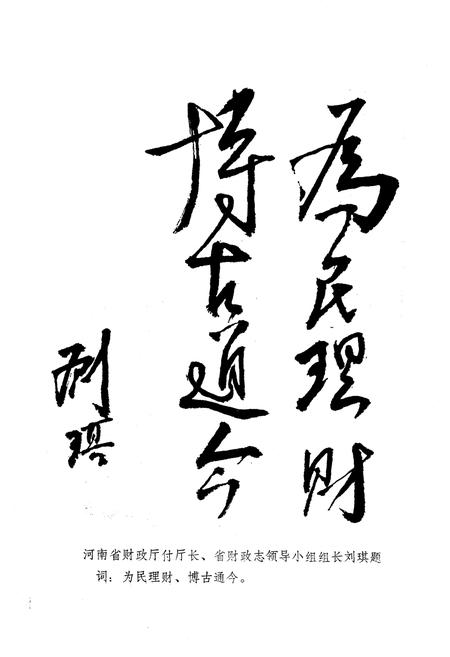 為民理财
博古通今
刘琪
河南省财政厅付厅长、省财政志领导小组组长刘琪题
词：为民理财、博古通今。